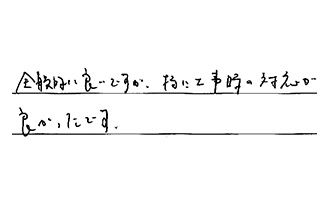 全般的に良いですが、特に工事時の対応が
良かったです。